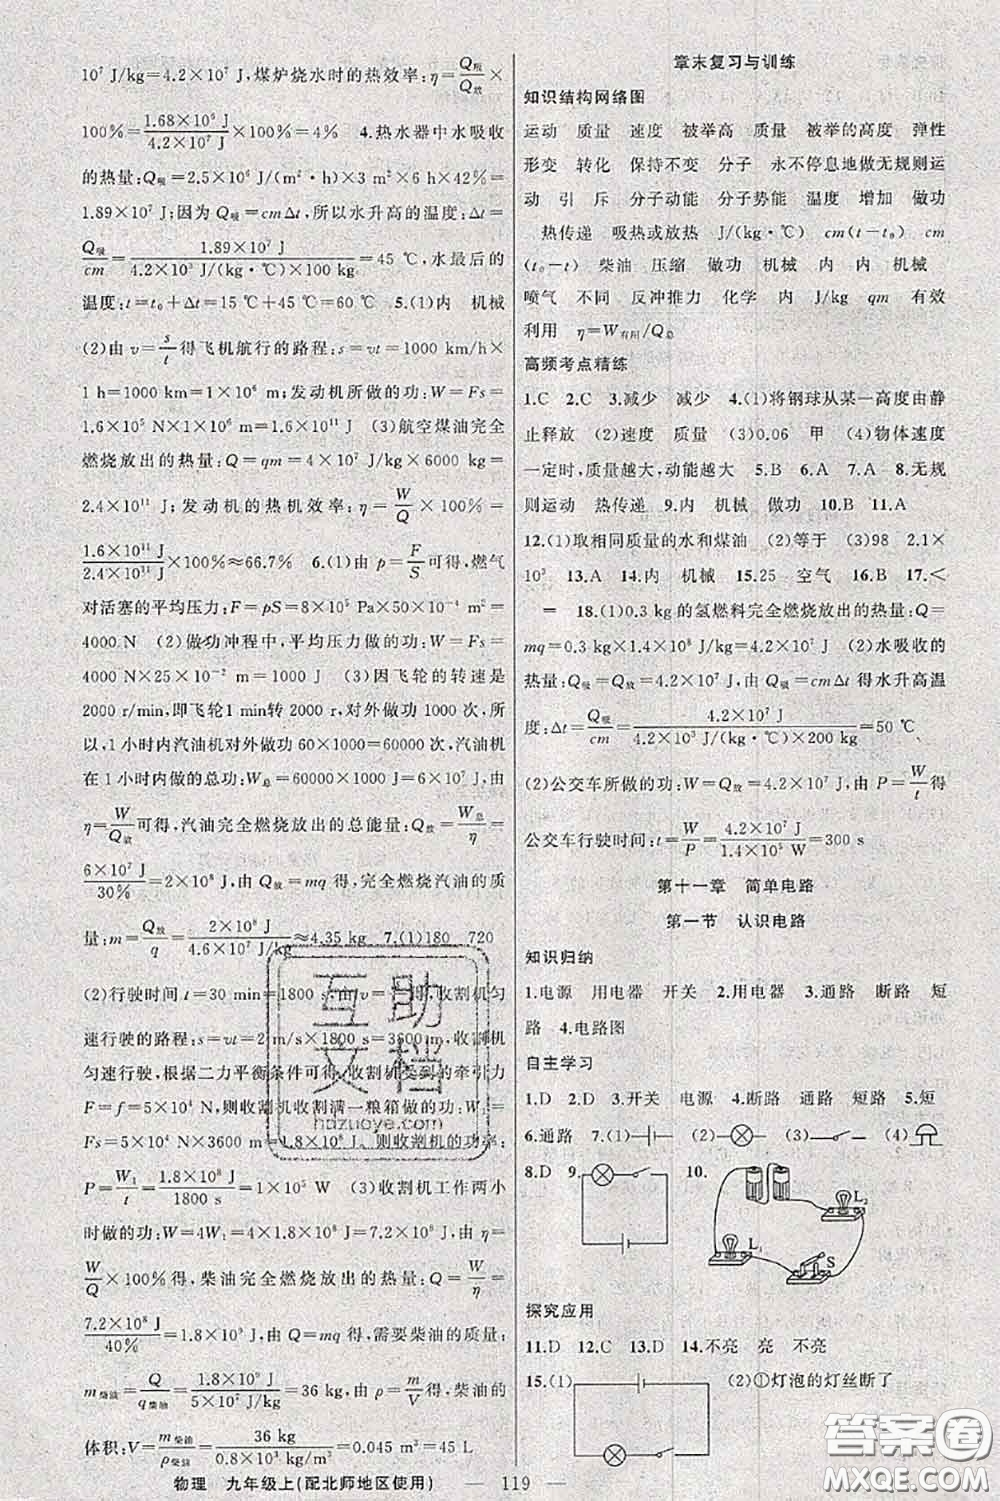 10⁷ J/kg=4.2×10⁷ J,煤炉烧水时的热效率:η=Q吸/Q放×
100%=1.68×10⁵ J/4.2×10⁷ J×100%=4% 4.热水器中水吸收
的热量:Q吸=2.5×10⁶ J/(m²·h)×3 m²×6 h×42%=
1.89×10⁷ J;因为Q吸=cmΔt,所以水升高的温度:Δt=
Q吸/cm=1.89×10⁷ J/4.2×10³ J/(kg·℃)×100 kg=45 ℃,水最后的
温度:t=t₀+Δt=15 ℃+45 ℃=60 ℃ 5.(1)内 机械
(2)由v=s/t得飞机航行的路程:s=vt=1000 km/h×
1 h=1000 km=1×10⁶ m;发动机所做的功:W=Fs=
1.6×10⁵ N×1×10⁶ m=1.6×10¹¹ J (3)航空煤油完全
燃烧放出的热量:Q=qm=4×10⁷ J/kg×6000 kg=
2.4×10¹¹ J;发动机的热机效率:η=W/Q×100%=
1.6×10¹¹ J/2.4×10¹¹ J×100%≈66.7% 6.(1)由p=F/S可得,燃气
对活塞的平均压力:F=pS=8×10⁵ Pa×50×10⁻⁴ m²=
4000 N (2)做功冲程中,平均压力做的功:W=Fs=
4000 N×25×10⁻² m=1000 J (3)因飞轮的转速是
2000 r/min,即飞轮1 min转2000 r,对外做功1000次,所
以,1小时内汽油机对外做功60×1000=60000次,汽油机
在1小时内做的总功:W总=60000×1000 J=6×10⁷ J,由
η=W/Q放可得,汽油完全燃烧放出的总能量:Q放=W总/η=
6×10⁷ J/30%=2×10⁸ J,由Q放=mq得,完全燃烧汽油的质
量:m=Q放/q=2×10⁸ J/4.6×10⁷ J/kg≈4.35 kg 7.(1)180 720
(2)行驶时间t=30 min=1800 s,收割机匀
速行驶的路程:s=vt=2 m/s×1800 s=3600 m,收割机
匀速行驶,根据二力平衡条件可得,收割机受到的牵引力
F=f=5×10⁴ N,则收割机收割满一粮箱做的功:W₁=
Fs=5×10⁴ N×3600 m=1.8×10⁸ J,则收割机的功率:
P=W₁/t=1.8×10⁸ J/1800 s=1×10⁵ W (3)收割机工作两小
时做的功:W=4W₁=4×1.8×10⁸ J=7.2×10⁸ J,由η=
W/Q×100%得,柴油完全燃烧放出的热量:Q=W/η=
7.2×10⁸ J/40%=1.8×10⁹ J,由Q=mq得,需要柴油的质量:
m柴油=Q/q柴油=1.8×10⁹ J/5×10⁷ J/kg=36 kg,由ρ=m/V得,柴油的
体积:V=m柴油/ρ柴油=36 kg/0.8×10³ kg/m³=0.045 m³=45 L
章末复习与训练
知识结构网络图
运动 质量 速度 被举高 质量 被举的高度 弹性
形变 转化 保持不变 分子 永不停息地做无规则运
动 引 斥 分子动能 分子势能 温度 增加 做功
热传递 吸热或放热 J/(kg·℃) cm(t-t₀) cm
(t₀-t) 柴油 压缩 做功 机械 内 内 机械
喷气 不同 反冲推力 化学 内 J/kg qm 有效
利用 η=W有用/Q总
高频考点精练
1.C 2.C 3.减少 减少 4.(1)将钢球从某一高度由静
止释放 (2)速度 质量 (3)0.06 甲 (4)物体速度
一定时,质量越大,动能越大 5.B 6.A 7.A 8.无规
则运动 热传递 9.内 机械 做功 10.B 11.A
12.(1)取相同质量的水和煤油 (2)等于 (3)98 2.1×
10³ 13.A 14.内 机械 15.25 空气 16.B 17.<
= 18.(1)0.3 kg的氢燃料完全燃烧放出的热量:Q=
mq=0.3 kg×1.4×10⁸ J/kg=4.2×10⁷ J (2)水吸收的
热量:Q吸=Q放=4.2×10⁷ J,由Q吸=cmΔt得水升高温
度:Δt=Q吸/cm=4.2×10⁷ J/4.2×10³ J/(kg·℃)×200 kg=50 ℃
(2)公交车所做的功:W=Q放=4.2×10⁷ J,由P=W/t得
公交车行驶时间:t=W/P=4.2×10⁷ J/1.4×10⁵ W=300 s
第十一章 简单电路
第一节 认识电路
知识归纳
1.电源 用电器 开关 2.用电器 3.通路 断路 短
路 4.电路图
自主学习
1.D 2.D 3.开关 电源 4.断路 通路 短路 5.短
6.通路 7.(1) (2) (3) (4)
8.D 9. 10.
L₂
L₁
S
探究应用
11.D 12.C 13.D 14.不亮 亮 不亮
15.(1) (2)①灯泡的灯丝断了
物理 九年级上(配北师地区使用) — 119 —
互助文档
hdzuoye.com
答案圈
MXQE.COM